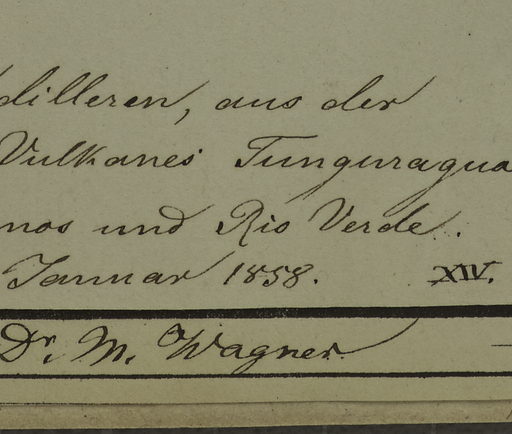 dilleren, aus der
Vulkanes Tunguragua
nos und Rio Verde.
Januar 1858. XIV.
Dr. M. Wagner.